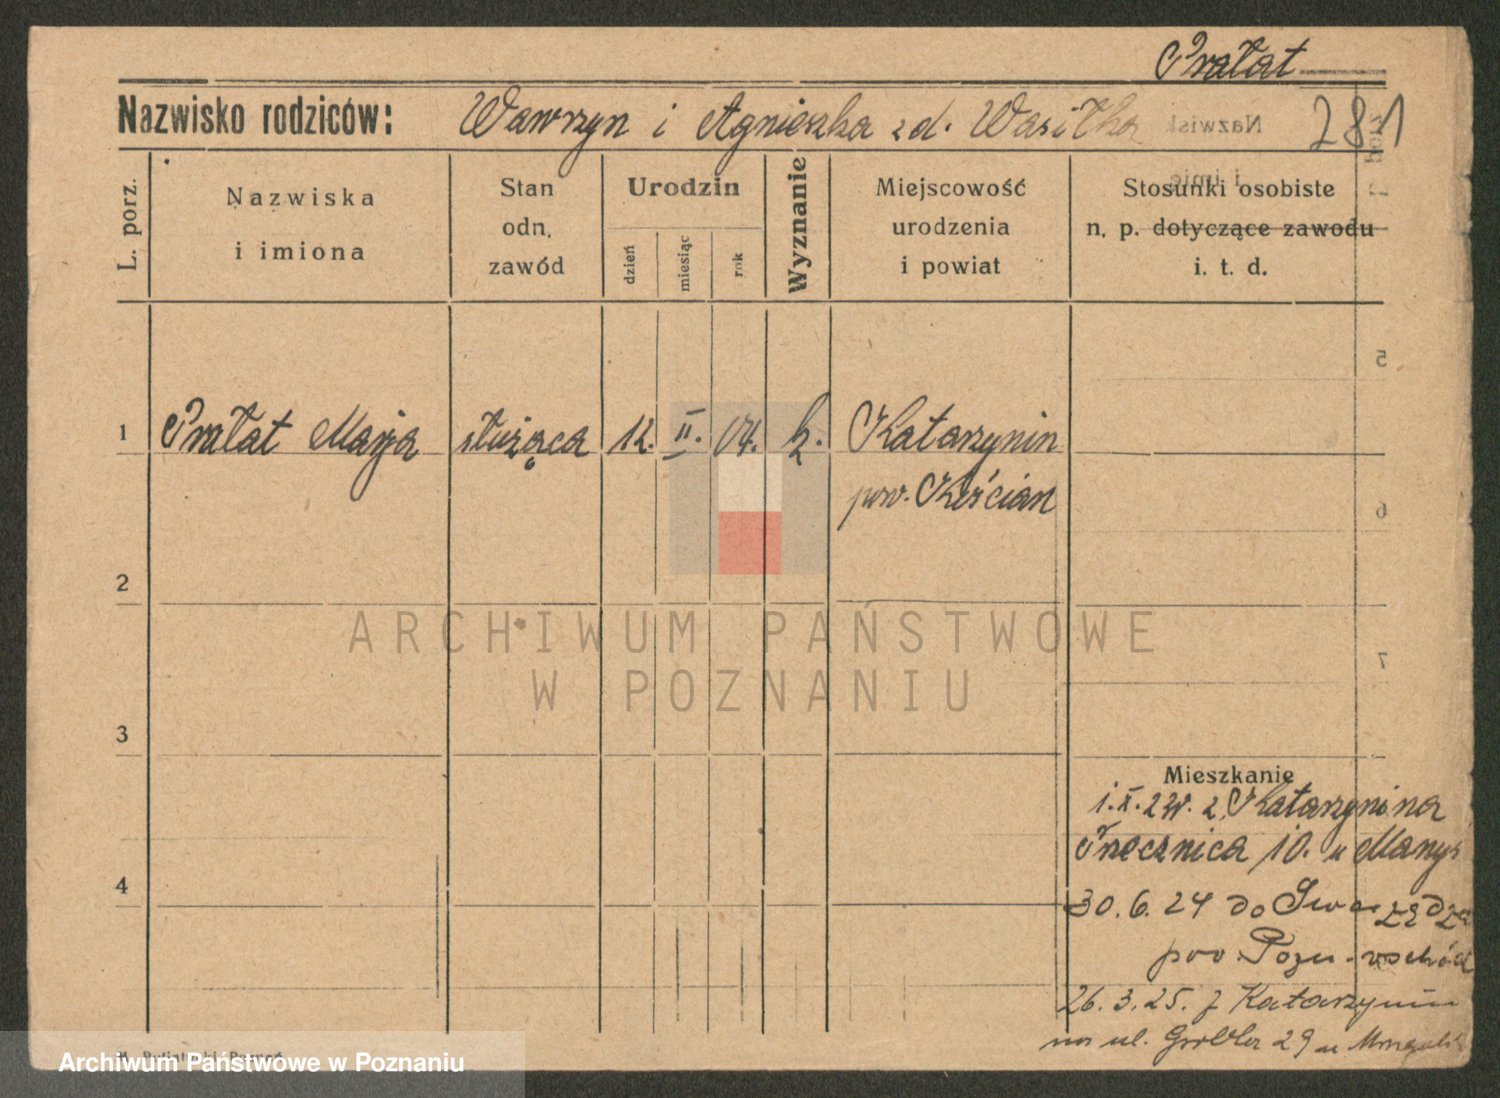 Prałat
Nazwisko rodziców: Wawrzyn i Agnieszka zd. Wasiłka 281
L. porz.
Nazwiska
i imiona
Stan
odn.
zawód
Urodzin
dzień
miesiąc
rok
Wyznanie
Miejscowość
urodzenia
i powiat
Stosunki osobiste
n. p. dotyczące zawodu
i. t. d.
1 Prałat Marja służąca 12. II. 04. k. Katarzynin
pow. Kościan
2
3
4
Mieszkanie
1.X.22r. z Katarzynina
Przecznica 10. u
30.6.24 do Swarzędza
pow. Pozn.-wschód
26.3.25. z Katarzynin
na ul. Grobla 29 u
ARCHIWUM PAŃSTWOWE
W POZNANIU
Archiwum Państwowe w Poznaniu